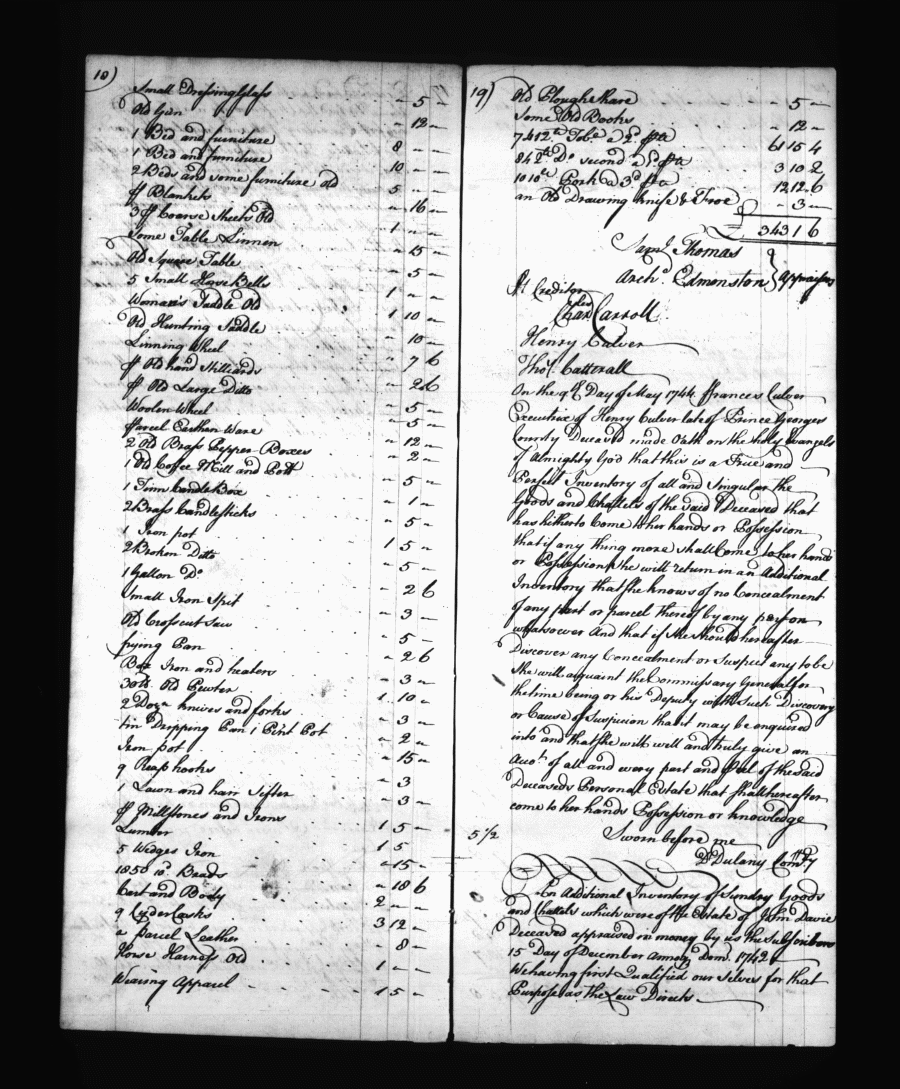 18)
Small Dressing Glass - 5 -
Old Gun - 12 -
1 Bed and furniture 8 - -
1 Bed and furniture 10 - -
2 Beds and some furniture old 5 - -
pr Blankets - 16 -
3 pr Coarse Sheets Old 1 - -
Some Table Linnen - 15 -
Old Square Table - 5 -
5 Small Horse Bells 1 - -
Woman's Saddle Old 1 10 -
Old Hunting Saddle - 10 -
Linning Wheel - 7 6
pr Old hand Stilliards - 2 6
pr Old Large Ditto - 5 -
Woolen Wheel - 5 -
Parcel Earthen Ware - 12 -
2 Old Brass Pepper Boxes - 2 -
1 Old Coffee Mill and Pott - 5 -
1 Tinn Candle Box - 1 -
2 Brass Candlesticks - 5 -
1 Iron pot 1 5 -
2 Broken Ditto - 5 -
1 Gallon Do - 2 6
Small Iron Spit - 3 -
Old Crosscut Saw - 5 -
frying Pan - 2 6
Box Iron and heaters - 3 -
30 Old Pewter 1 10 -
2 Dozn knives and forks - 3 -
tin Dripping Pan 1 Pint Pot - 2 -
Iron pot - 15 -
9 Reap hooks - 3
1 Lawn and hair Sifter - 3 -
pr Millstones and Irons 1 5 -
Lumber 1 5
5 Wedges Iron - 15 -
1850 10d Brads - 18 6
Cart and Body 2 - -
9 Cyder Casks 3 12 -
a Parcel Leather 8 -
Horse Harness Old 1 - -
Wearing Apparel 1 5 -
19)
Old Plough Share - 5 -
Some Old Books - 12 -
7412 Tobo a 2d 61 15 4
842 Do second a 1d 3 10 2
1010 Pork a 3d 12 12 6
an Old Drawing knife & Froe - 3 -
£ 343 1 6
Saml Thomas
Archd Edmonston } Appraisers
pt Creditor
Charles Carroll
Henry Culver
Thos Catterall
On the 9th Day of May 1744 Frances Culver
Executrix of Henry Culver late of Prince Georges
County Deceased made Oath on the holy Evangels
of Almighty God that this is a True and
Perfect Inventory of all and Singular the
Goods and Chattels of the Said Deceased that
has hitherto Come to her hands or Possession
that if any thing more shall Come to her hands
or Possession she will return in an Additional
Inventory that she knows of no Concealment
of any part or parcel thereof by any person
whatsoever And that if She Should hereafter
Discover any Concealment or Suspect any to be
She will acquaint the Commissary General for
the time being or his Deputy with Such Discovery
or Cause of Suspicion that it may be enquired
into and that she will well and truly give an
Accot of all and every part and pcel of the said
Deceaseds Personal Estate that shall hereafter
come to her hands Possession or knowledge
5 1/2 Sworn before me
D Dulany Comry
An Additional Inventory of Sundry Goods
and Chattels which were of the Estate of John Davis
Deceased appraised in money by us the Subscribers
15 Day of December Annoq Dom. 1742
We having first Qualified our Selves for that
Purpose as the Law Directs